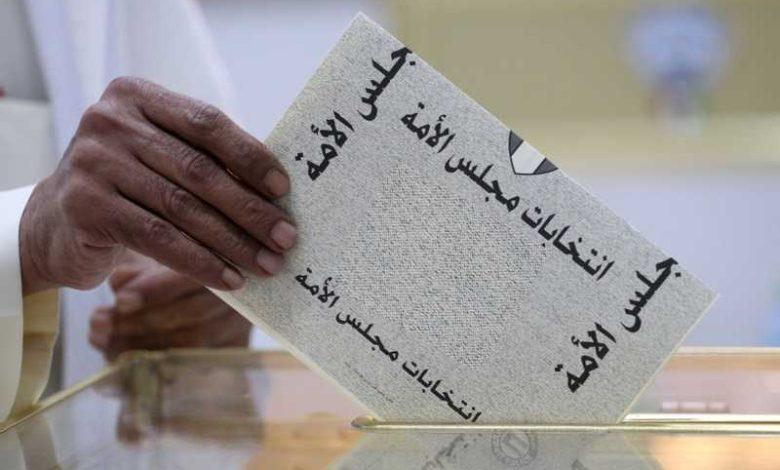 مجلس الأمة
انتخابات مجلس الأمة
مجلس الأمة
انتخابات مجلس الأمة